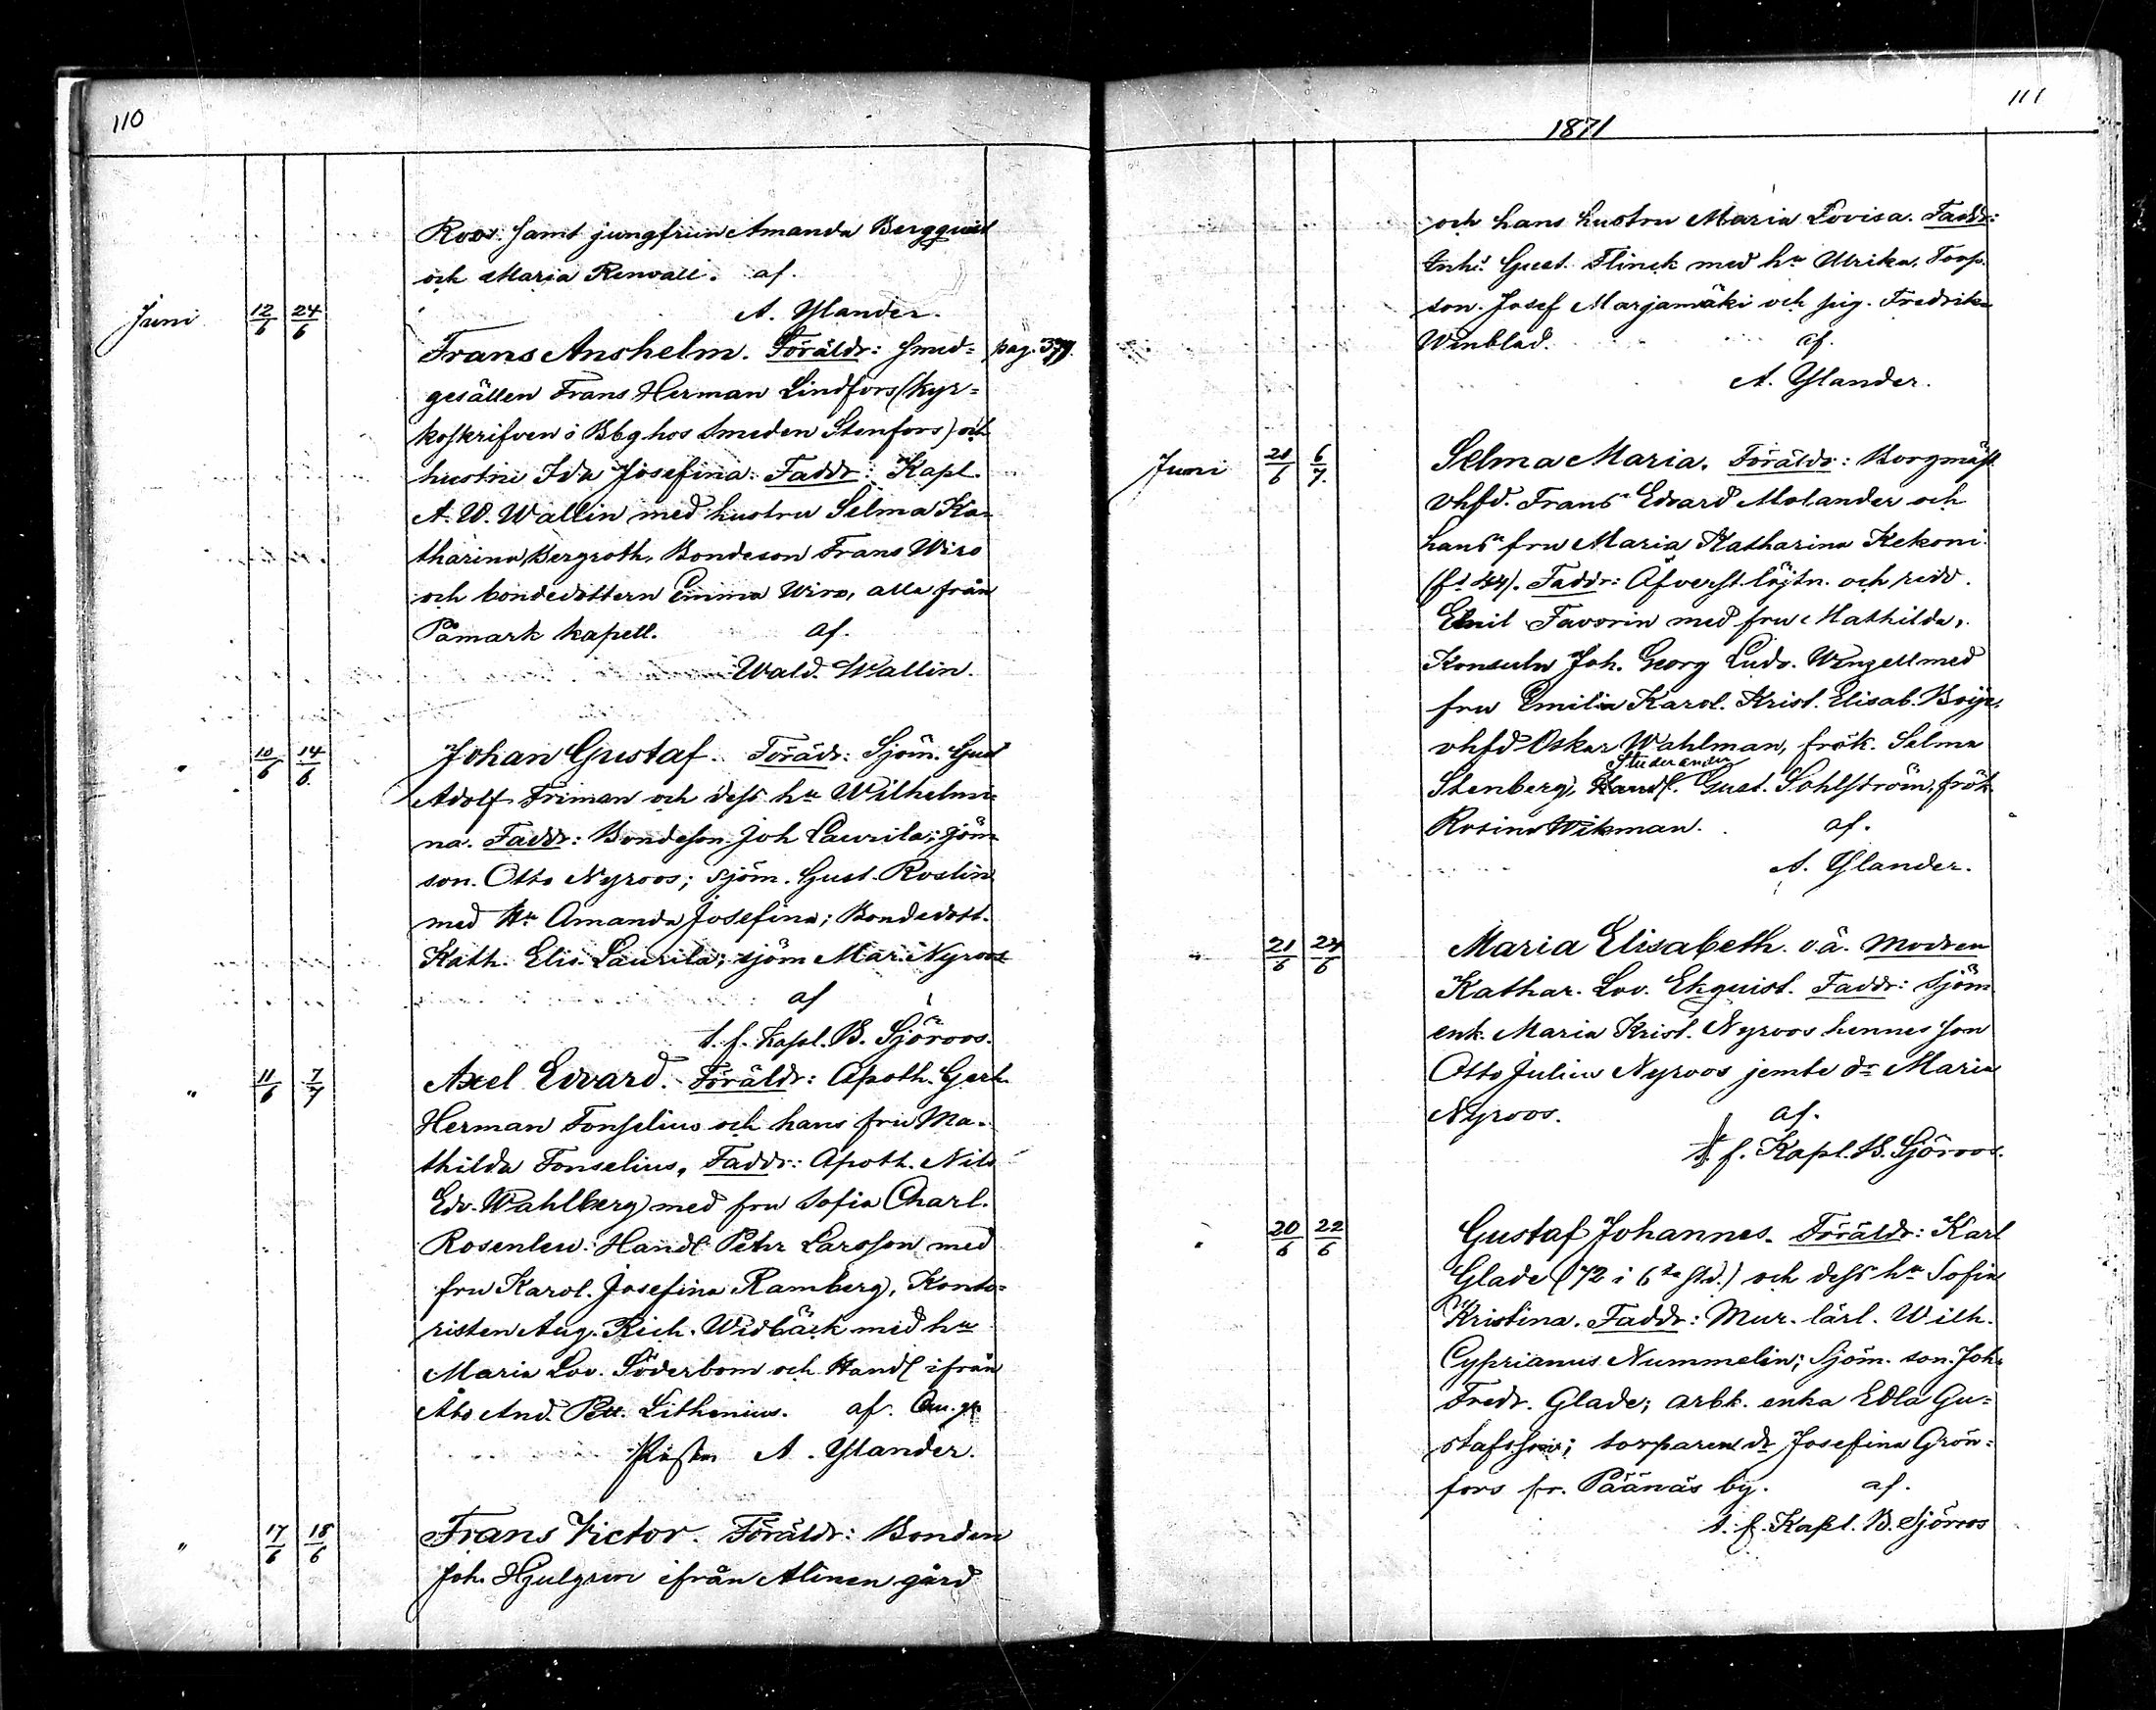 110
Roos. samt jungfrun Amanda Bergquist
och Maria Renvall. af.
A. Ylander.
Juni 12/6 24/6
Frans Anshelm. Föräldr: Smed= pag. 377.
gesällen Frans Herman Lindfors (kyr=
koskrifven i Bbg hos Smeden Stenfors) och
hustru Ida Josefina. Faddr: Kapl.
A. W. Wallin med hustru Selma Ka=
tharina Bergroth, Bondeson Frans Wiro
och bondedottern Emma Wiro, alla från
Påmark kapell. af.
Wald. Wallin.
" 10/6 14/6 Johan Gustaf. Förädr: Sjöm. Gust
Adolf Friman och dess hu Wilhelmi=
na. Faddr: Bondeson Joh Laurila; sjöm=
son. Otto Nyroos; sjöm. Gust. Roslin
med Hu Amanda Josefina; Bondedott.
Kath. Elis. Laurila; sjöm Mar. Nyroos
af
t. f. Kapl. B. Sjöroos.
" 11/6 7/7 Axel Edvard. Föräldr: Apoth. Gerh.
Herman Fonselius och hans fru Ma=
thilda Fonselius, Faddr: Apoth. Nils
Edv. Wahlberg med fru Sofia Charl.
Rosenlew. Handl Petter Larsson med
fru Karol. Josefina Ramberg, Konto=
risten Aug. Rich. Widbäck med hu
Maria Lov. Söderbom och Handl ifrån
Åbo And. Pett. Lithenius. af.
A. Ylander.
" 17/6 18/6 Frans Victor. Föräldr: Bonden
Joh. Hjulgren ifrån Alinen gård
1871
111
och hans hustru Maria Lovisa. Faddr:
Inh. Gust. Flinck med hu Ulrika, Torp.
son. Josef Marjamäki och pig. Fredrika
Winblad. af.
A. Ylander.
Juni 21/6 6/7. Selma Maria. Föräldr: Borgmäst.
vhfd. Frans Edvard Molander och
hans fru Maria Katharina Kekoni.
(fd 44). Faddr: Öfverst.löjtn. och ridd.
Emil Favorin med fru Mathilda,
Konsuln Joh. Georg Ludv. Wenzell med
fru Emilia Karol. Krist. Elisab. Boije,
vhfd Oskar Wahlman, frök. Selma
Studeranden
Stenberg, Handl. Gust. Sohlström, frök
Rosina Wikman. af.
A. Ylander.
" 21/6 24/6 Maria Elisabeth. o.ä. Modren
Kathar. Lov. Ekquist. Faddr: Sjöm
enk. Maria Krist. Nyroos hennes son
Otto Julius Nyroos jemte dr Maria
Nyroos. af.
t. f. Kapl. B. Sjöroos.
" 20/6 22/6 Gustaf Johannes. Föräldr: Karl
Glade (72 i 6te std.) och dess hu Sofia
Kristina. Faddr: Mur. lärl. Wilh.
Cyprianus Nummelin; Sjöm. son. Joh.
Fredr. Glade; arbk. enka Edla Gu=
stafsson; torparens dr Josefina Grön=
fors fr. Päänäs by. af.
t. f. Kapl. B. Sjöroos